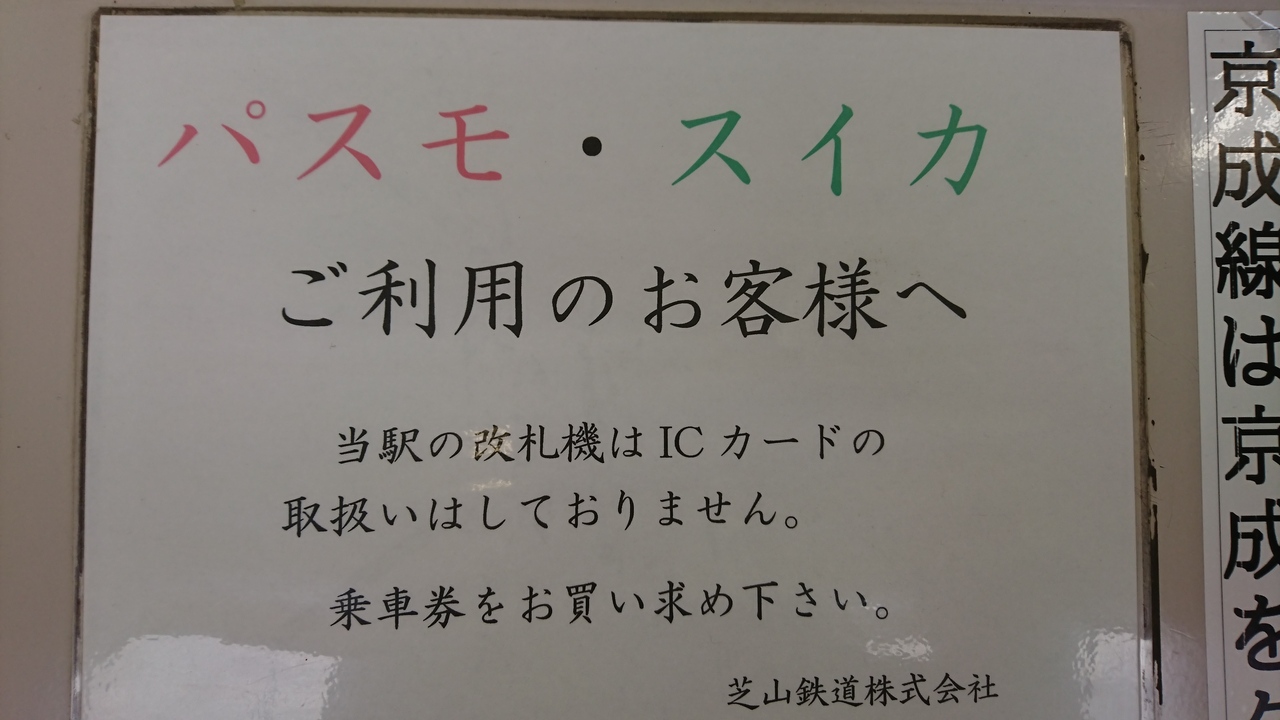 パスモ・スイカ
ご利用のお客様へ
当駅の改札機はICカードの
取扱いはしておりません。
乗車券をお買い求め下さい。
芝山鉄道株式会社
京成線は京成を